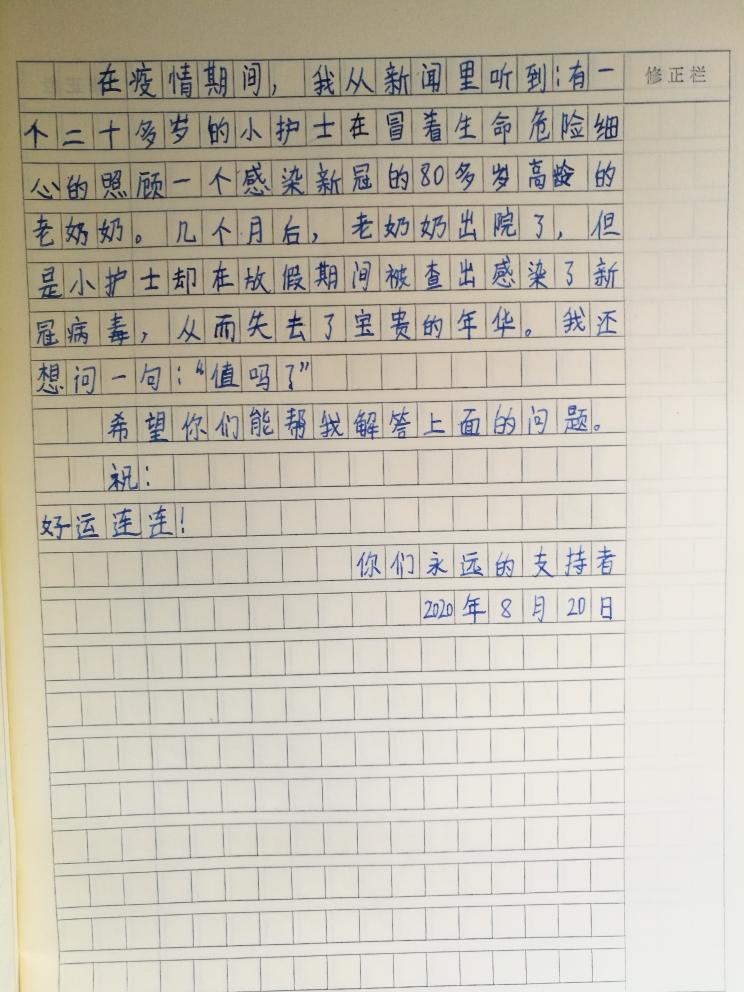 在疫情期间，我从新闻里听到：有一
修正栏
个二十多岁的小护士在冒着生命危险细
心的照顾一个感染新冠的80多岁高龄的
老奶奶。几个月后，老奶奶出院了，但
是小护士却在放假期间被查出感染了新
冠病毒，从而失去了宝贵的年华。我还
想问一句：“值吗？”
希望你们能帮我解答上面的问题。
祝：
好运连连！
你们永远的支持者
2020年8月20日